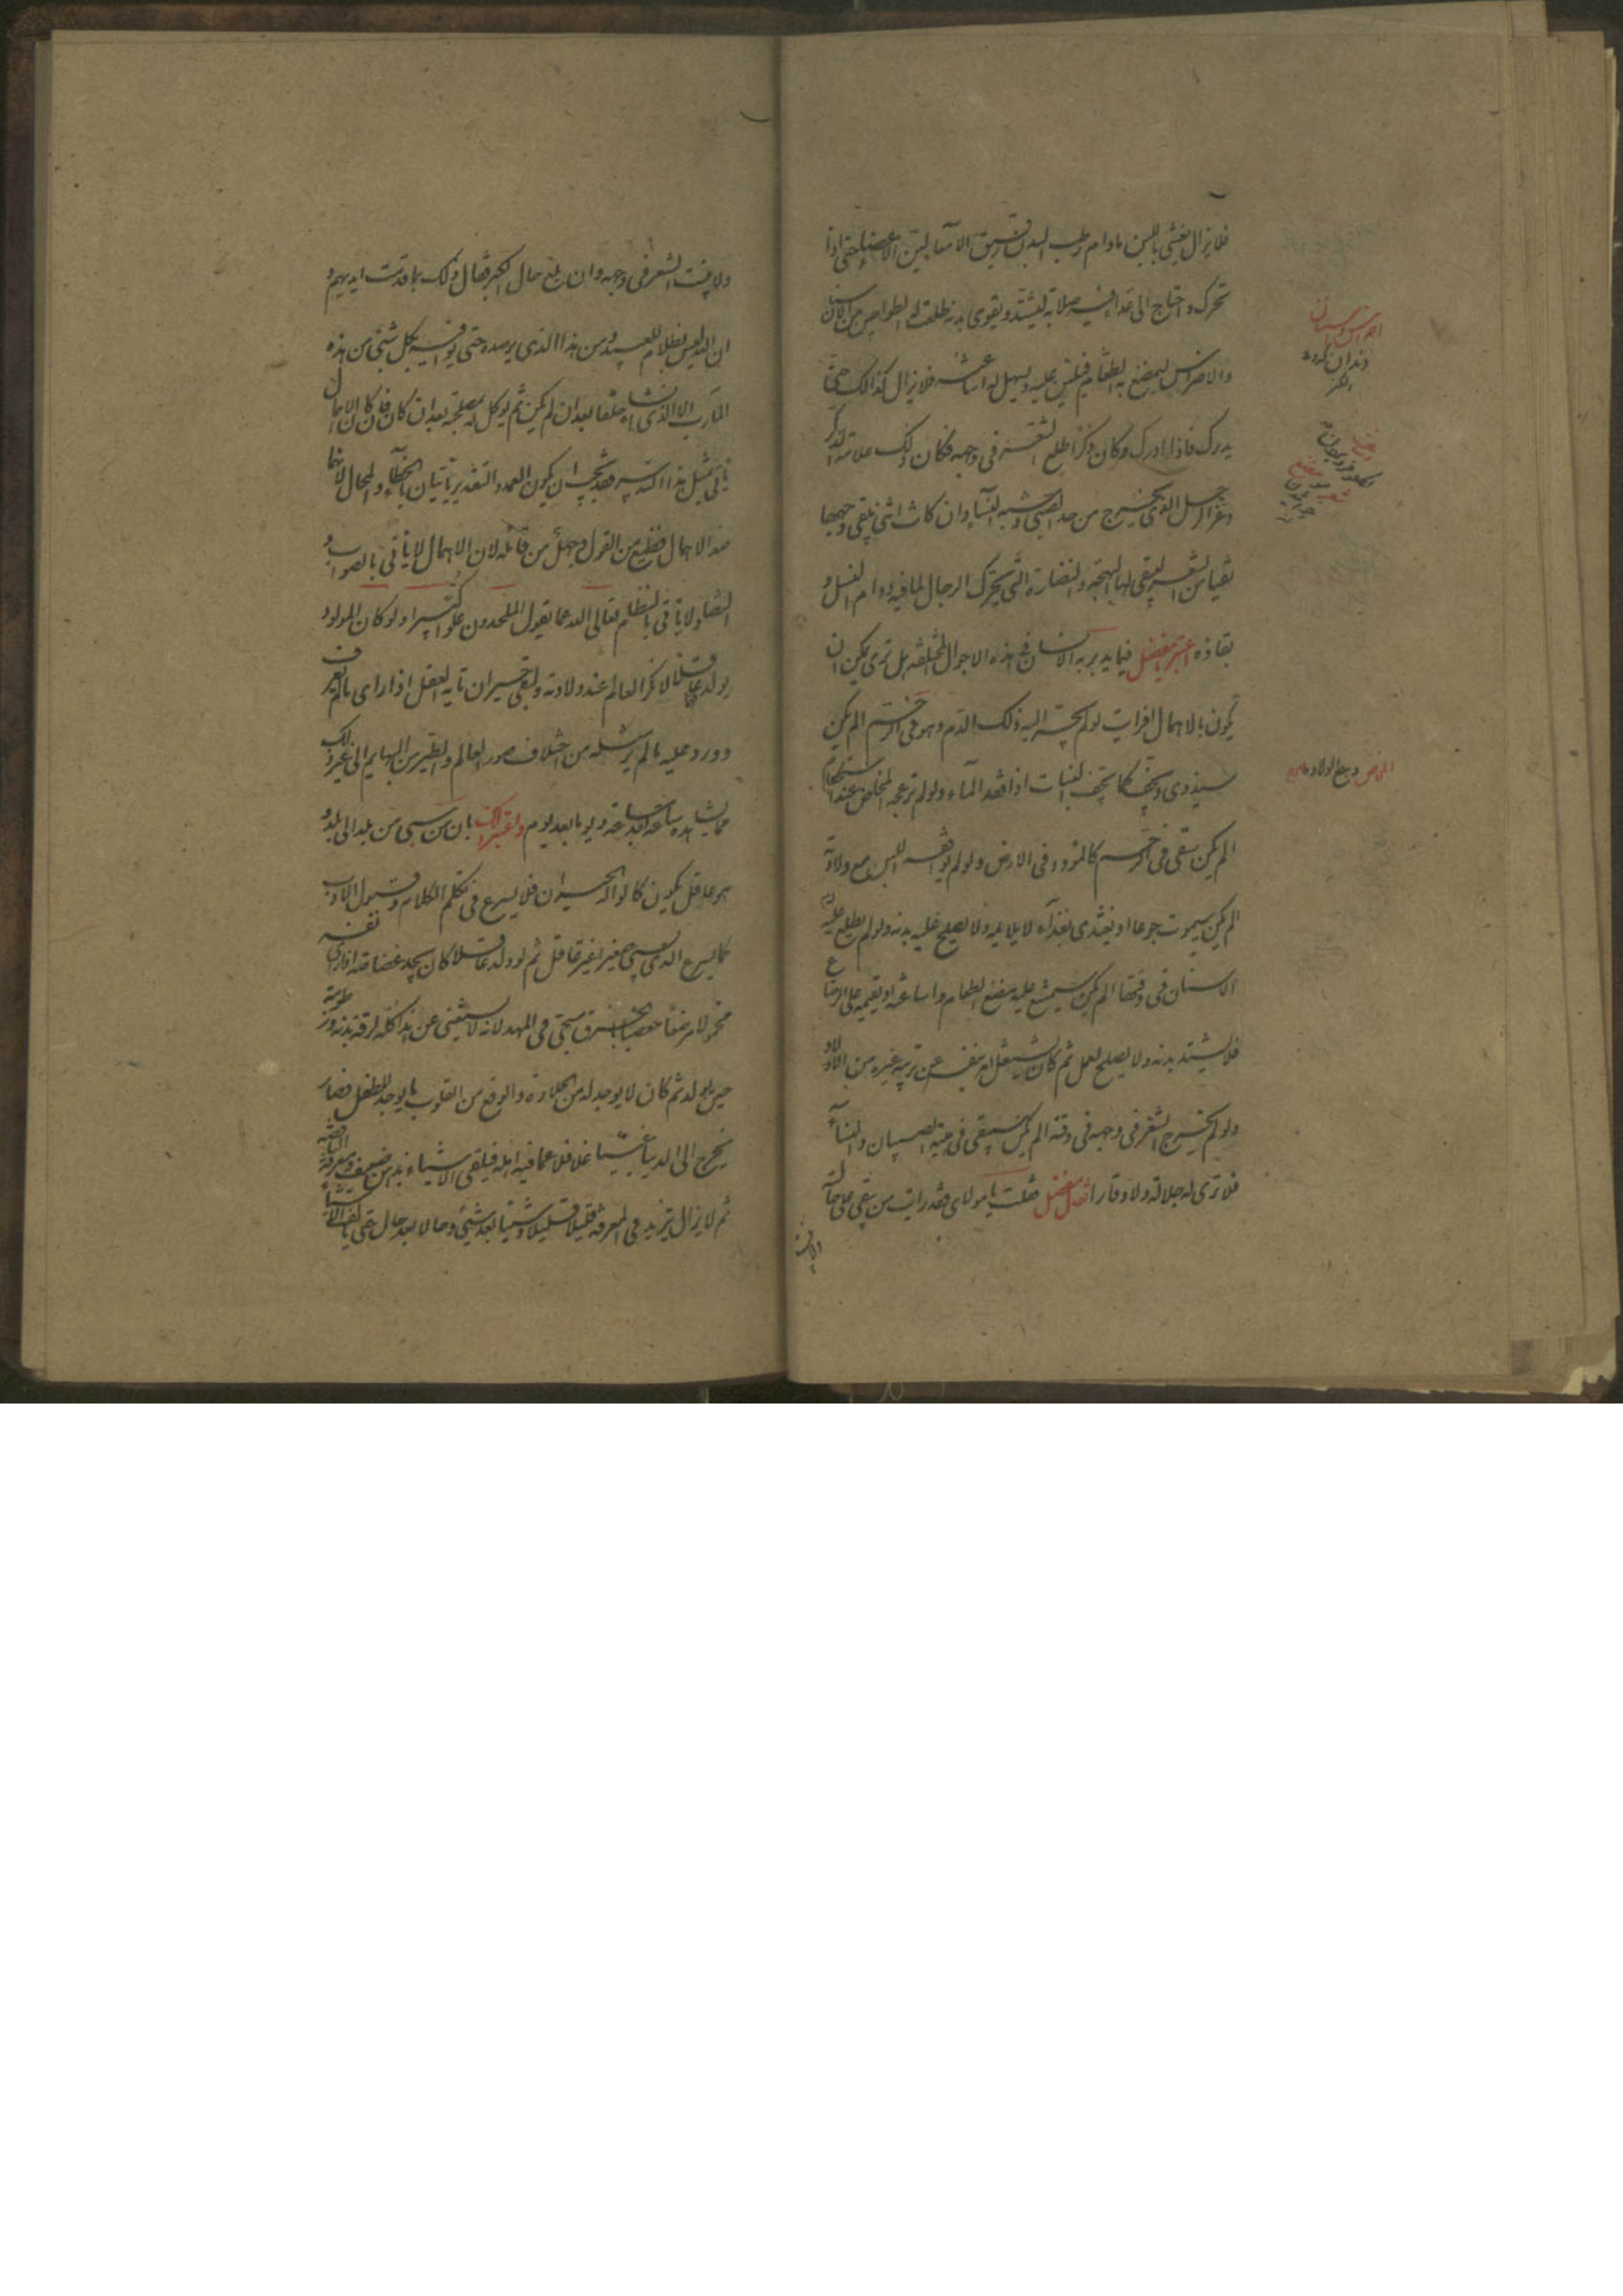 فلا يزال يغتذي باللبن ما دام رطب البدن رقيق الامعاء لين الاعضاء حتى اذا
تحرك و احتاج الى غذاء فيه صلابة ليشتد و يقوى بدنه طلعت له الطواحن من الاسنان
والاضراس ليمضغ به الطعام فيلين عليه و يسهل له اساغته فلا يزال كذالك حتى
يدرك فاذا ادرك وكان ذكرا طلع الشعر في وجهه فكان ذلك علامة الذكر
وعز الرجل الذي يخرج من حد الصبي و شبه النساء وان كانت انثى يبقى وجهها
نقيا من الشعر لتبقى لها البهجة والنضارة التي تحرك الرجال لما فيه دوام النسل و
بقاؤه اعتبر يا مفضل فيما يدبر به الانسان في هذه الاحوال المختلفة هل ترى يمكن ان
يكون بالاهمال افرايت لو لم يجر اليه ذلك الدم وهو في الرحم الم يكن
سيذوي و يجف كما يجف النبات اذا فقد الماء ولو لم يزعجه المخاض عند استحكامه
الم يكن سيبقى في الرحم كالموؤد في الارض ولو لم يوافقه اللبن مع ولادته
الم يكن سيموت جوعا او يغتذي بغذاء لا يلايمه ولا يصلح عليه بدنه ولو لم يطلع عليه
الاسنان في وقتها الم يكن سيمتنع عليه مضغ الطعام و اساغته او يقيمه على الرضاع
فلا يشتد بدنه ولا يصلح لعمل ثم كان يشتغل امه بنفسه عن تربية غيره من الاولاد
ولو لم يخرج الشعر في وجهه في وقته الم يكن سيبقى في هيئة الصبيان والنساء
فلا ترى له جلالة ولا وقارا فقال مفضل فقلت يا مولاي فقد رايت من يبقى على حالته
ولا ينبت
دندان
المخاض وجع الولادة
ولا ينبت الشعر في وجهه وان بلغ حال الكبر فقال ذلك بما قدمت ايديهم و
ان الله ليس بظلام للعبيد ومن هذا الذي يرصده حتى يوافيه بكل شيء من هذه
المآرب الا الذي انشاه خلقا بعد ان لم يكن ثم توكل له بمصلحته بعد ان كان فان كان الاهمال
ياتي بمثل هذا التدبير فقد يجب ان يكون العمد والتقدير ياتيان بالخطاء و المحال لانهما
ضد الاهمال وهذا فظيع من القول و جهل من قائله لان الاهمال لا ياتي بالصواب و
التضاد لا ياتي بالنظام تعالى الله عما يقول الملحدون علوا كبيرا ولو كان المولود
يولد عاقلا لانكر العالم عند ولادته و لبقي حيران تايه العقل اذا راى ما لم يعرف
و ورد عليه ما لم ير مثله من اختلاف صور العالم والطير من البهايم الى غير ذلك
مما يشاهده ساعة بعد ساعة ويوما بعد يوم واعتبر ذلك بان من سبي من بلد الى بلد و
هو عاقل يكون كالواله الحيران فلا يسرع في تكلم الكلام و قبول الادب
كما يسرع الذي يسبى صغيرا غير عاقل ثم لو ولد عاقلا كان يجد غضاضة اذا راى نفسه
محمولا مرضعا معصبا بالخرق مسجى في المهد لانه لا يستغني عن هذا كله لرقة بدنه و رطوبته
حين يولد ثم كان لا يوجد له من الحلاوة والوقع من القلوب ما يوجد للطفل فصار
يخرج الى الدنيا غبيا غافلا عما فيه اهله فيلقى الاشياء بذهن ضعيف و معرفة ناقصة
ثم لا يزال يتزيد في المعرفة قليلا قليلا و شيئا بعد شيئ وحالا بعد حال حتى يالف الاشياء